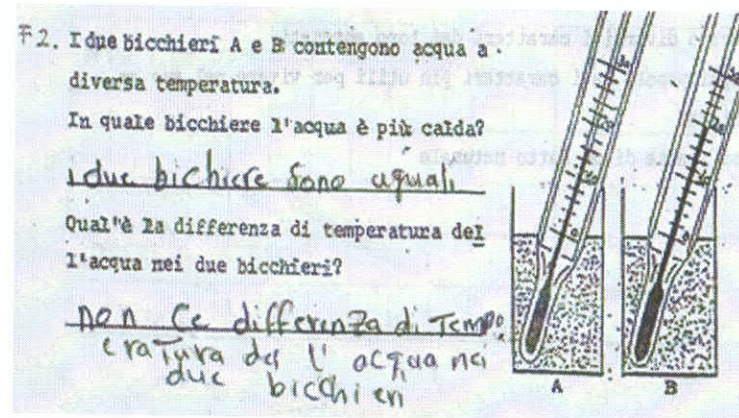 F2. I due bicchieri A e B contengono acqua a
diversa temperatura.
In quale bicchiere l'acqua è più calda?
I due bichiere sono uguali
Qual'è la differenza di temperatura del
l'acqua nei due bicchieri?
non Ce differenza di Temp
eratura del l' acqua nei
due bicchieri
A B